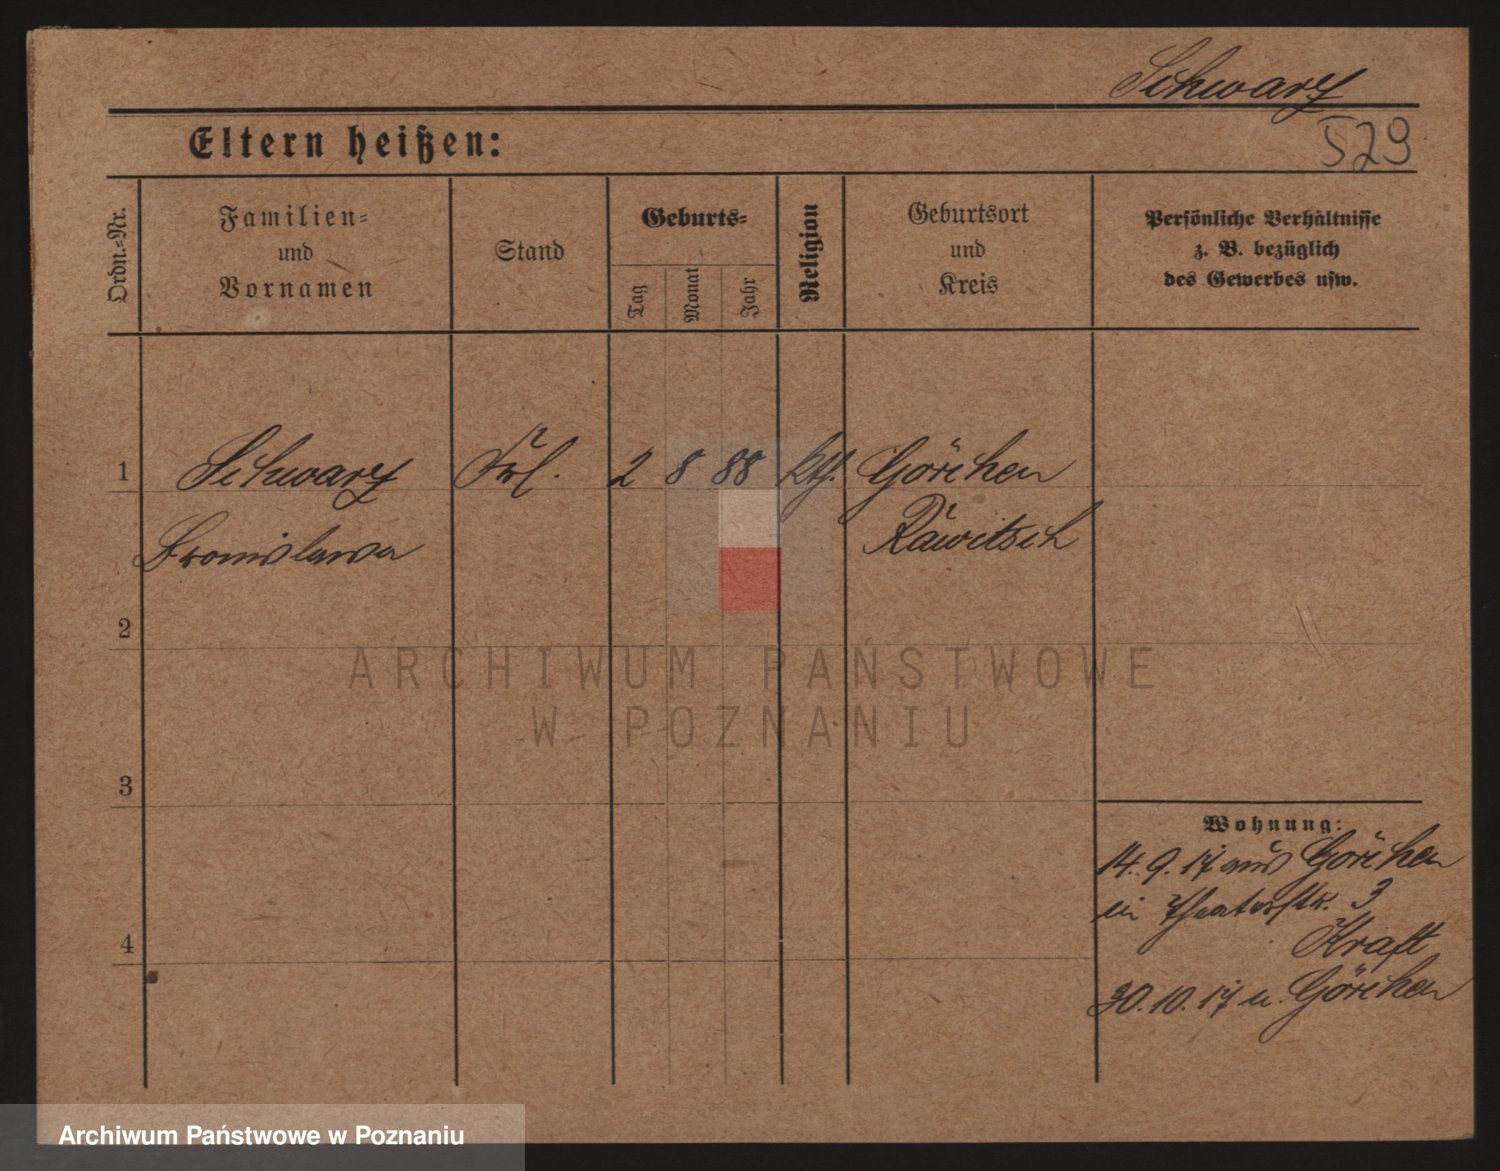 Schwarz
529
Eltern heißen:
Ordn.=Nr.
Familien=
und
Vornamen
Stand
Geburts=
Tag
Monat
Jahr
Religion
Geburtsort
und
Kreis
Persönliche Verhältnisse
z. B. bezüglich
des Gewerbes usw.
1 Schwarz Frl. 2 8 88 kth. Görchen
Bronislawa Rawitsch
2
3
4
Wohnung:
14. 9. 17 aus Görchen
in Theaterstr. 3
Kraft
30. 10. 17 n. Görchen
ARCHIWUM PAŃSTWOWE
W POZNANIU
Archiwum Państwowe w Poznaniu